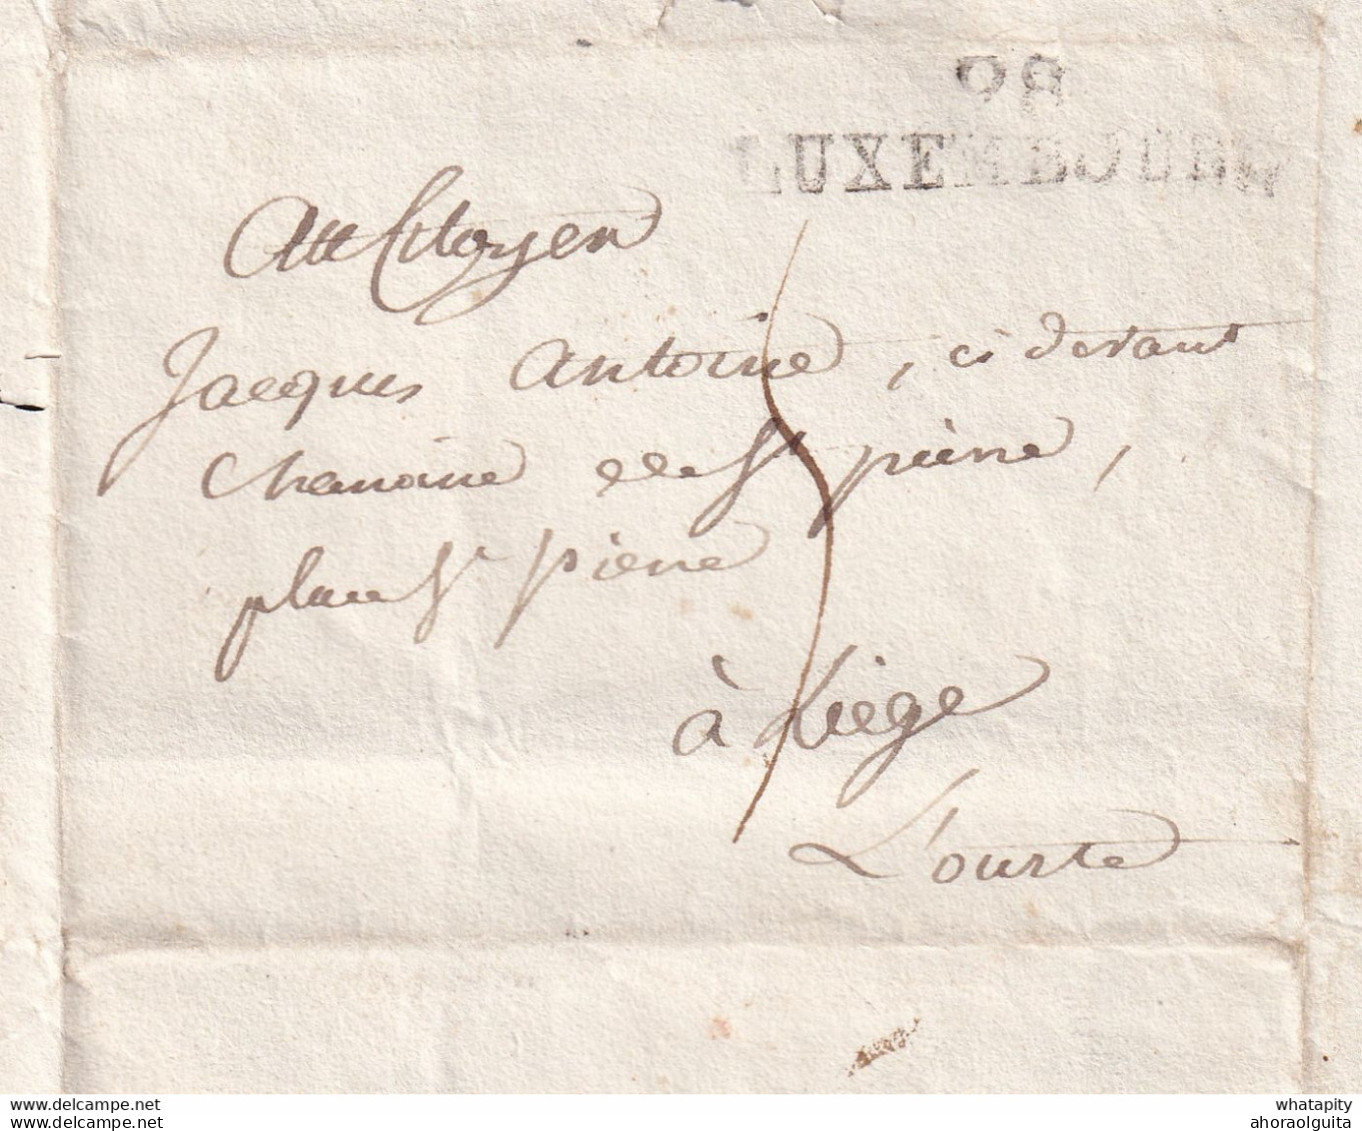 98
LUXEMBOURG
Au Citoyen
Jacques Antoine, ci devant
Chanoine de St pierre,
place St pierre
à Liège
L'ourte
delcampe.net
delcampe.net
whatapity
ahoraolguita